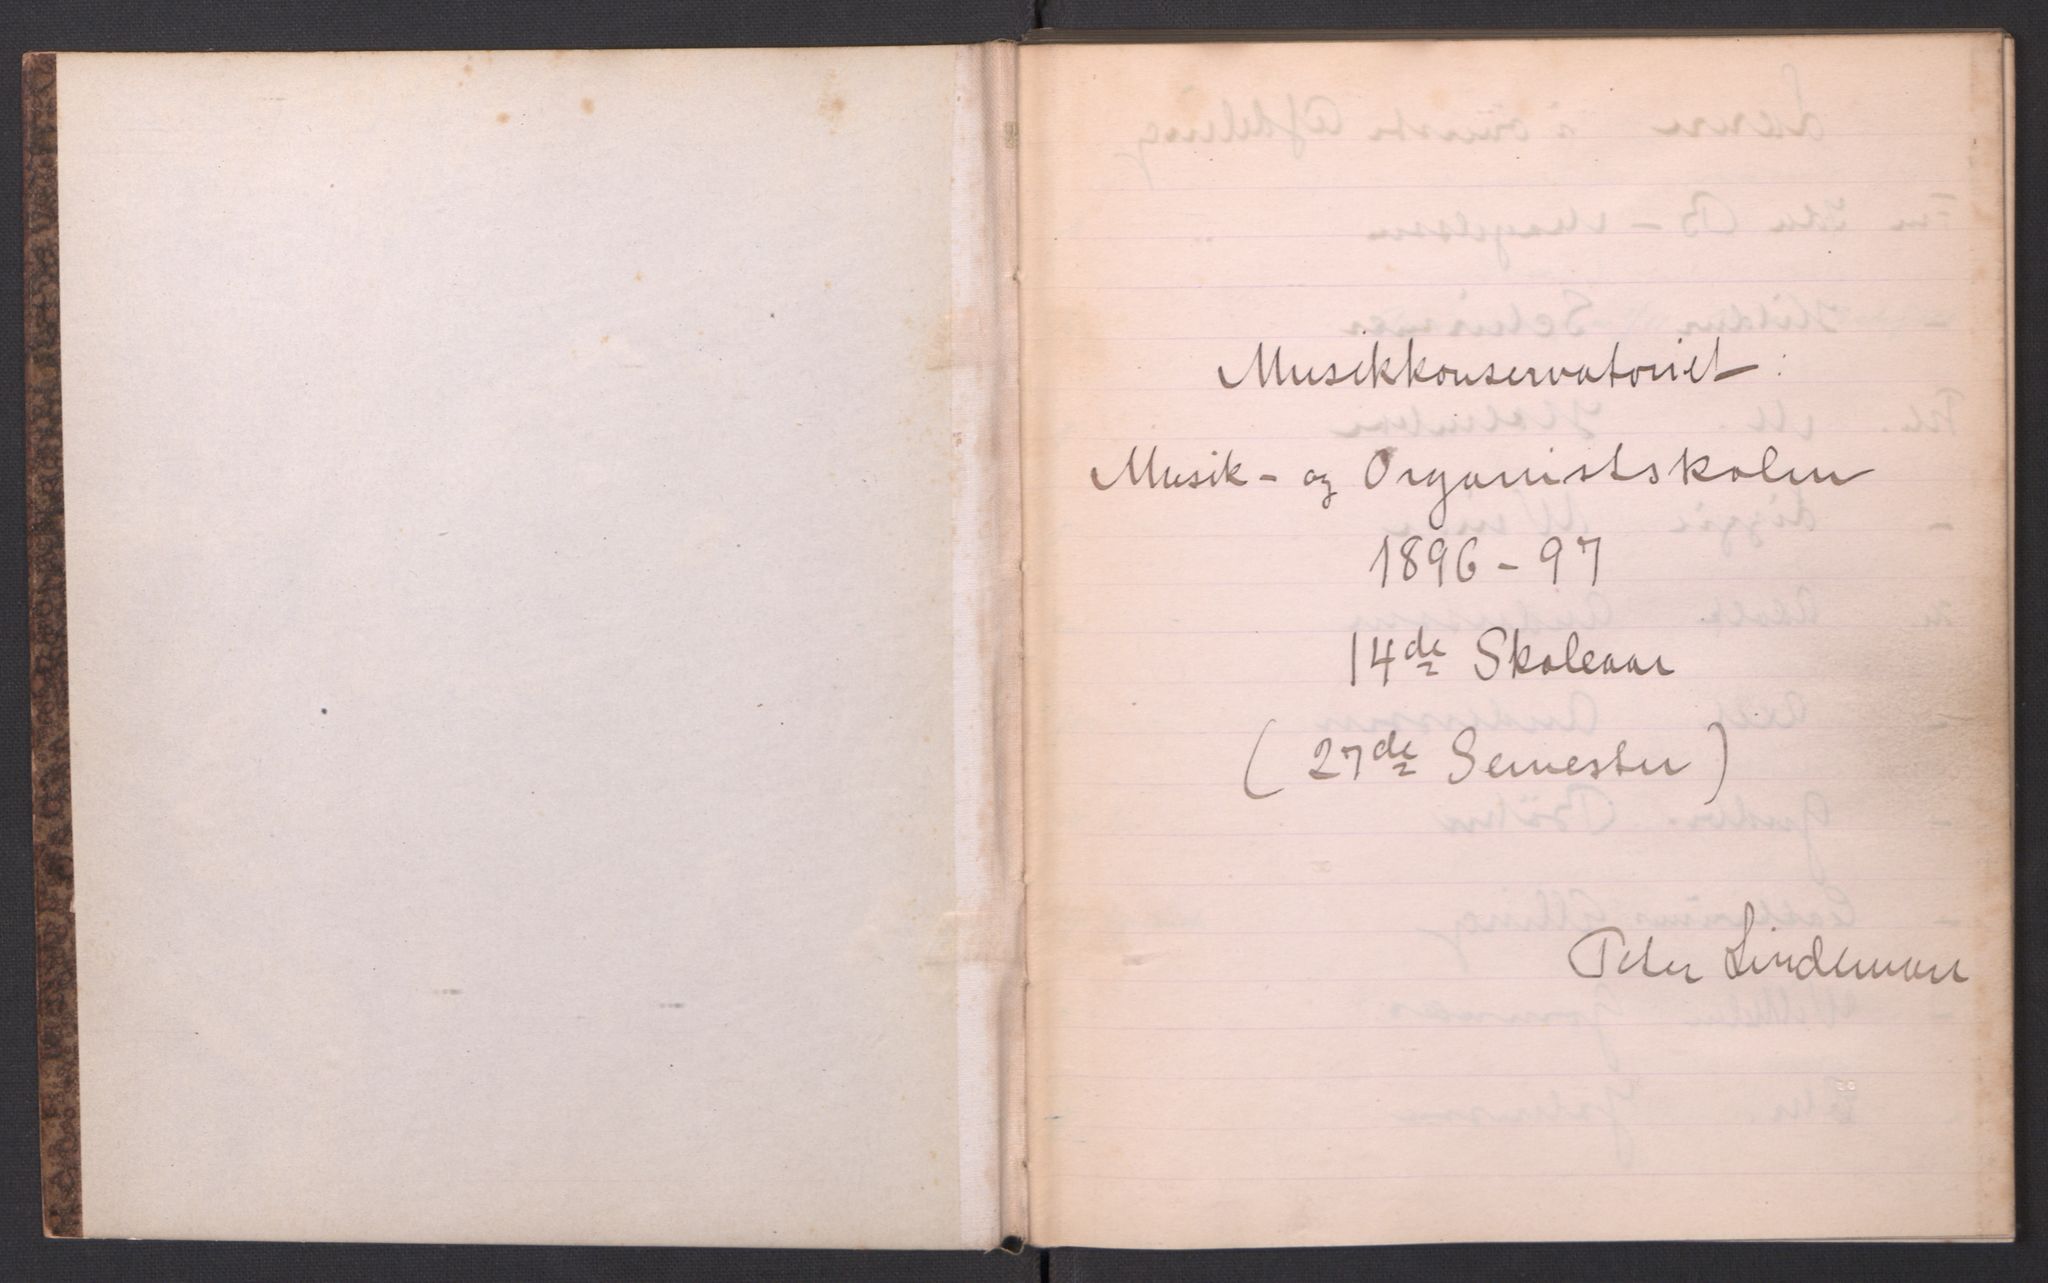 Musikkonservatoriet:
Musik- og Organistskolen
1896-97
14de Skoleaar
(27de Semester)
Peter Lindeman